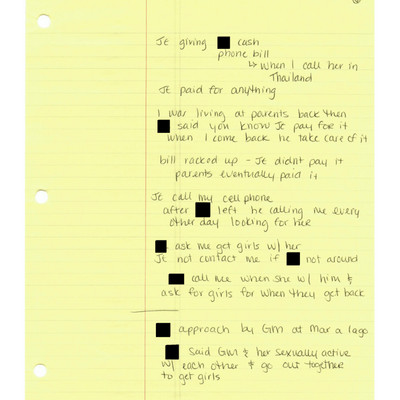 JE giving cash
phone bill
↳ when I call her in
Thailand
JE paid for anything
I was living at parents back then
said you know JE pay for it
when I come back he take care of it
bill racked up - JE didnt pay it
parents eventually paid it
JE call my cell phone
after left he calling me every
other day looking for her
ask me get girls w/ her
JE not contact me if not around
call me when she w/ him &
ask for girls for when they get back
approach by GM at Mar a lago
said GM & her sexually active
w/ each other & go out together
to get girls